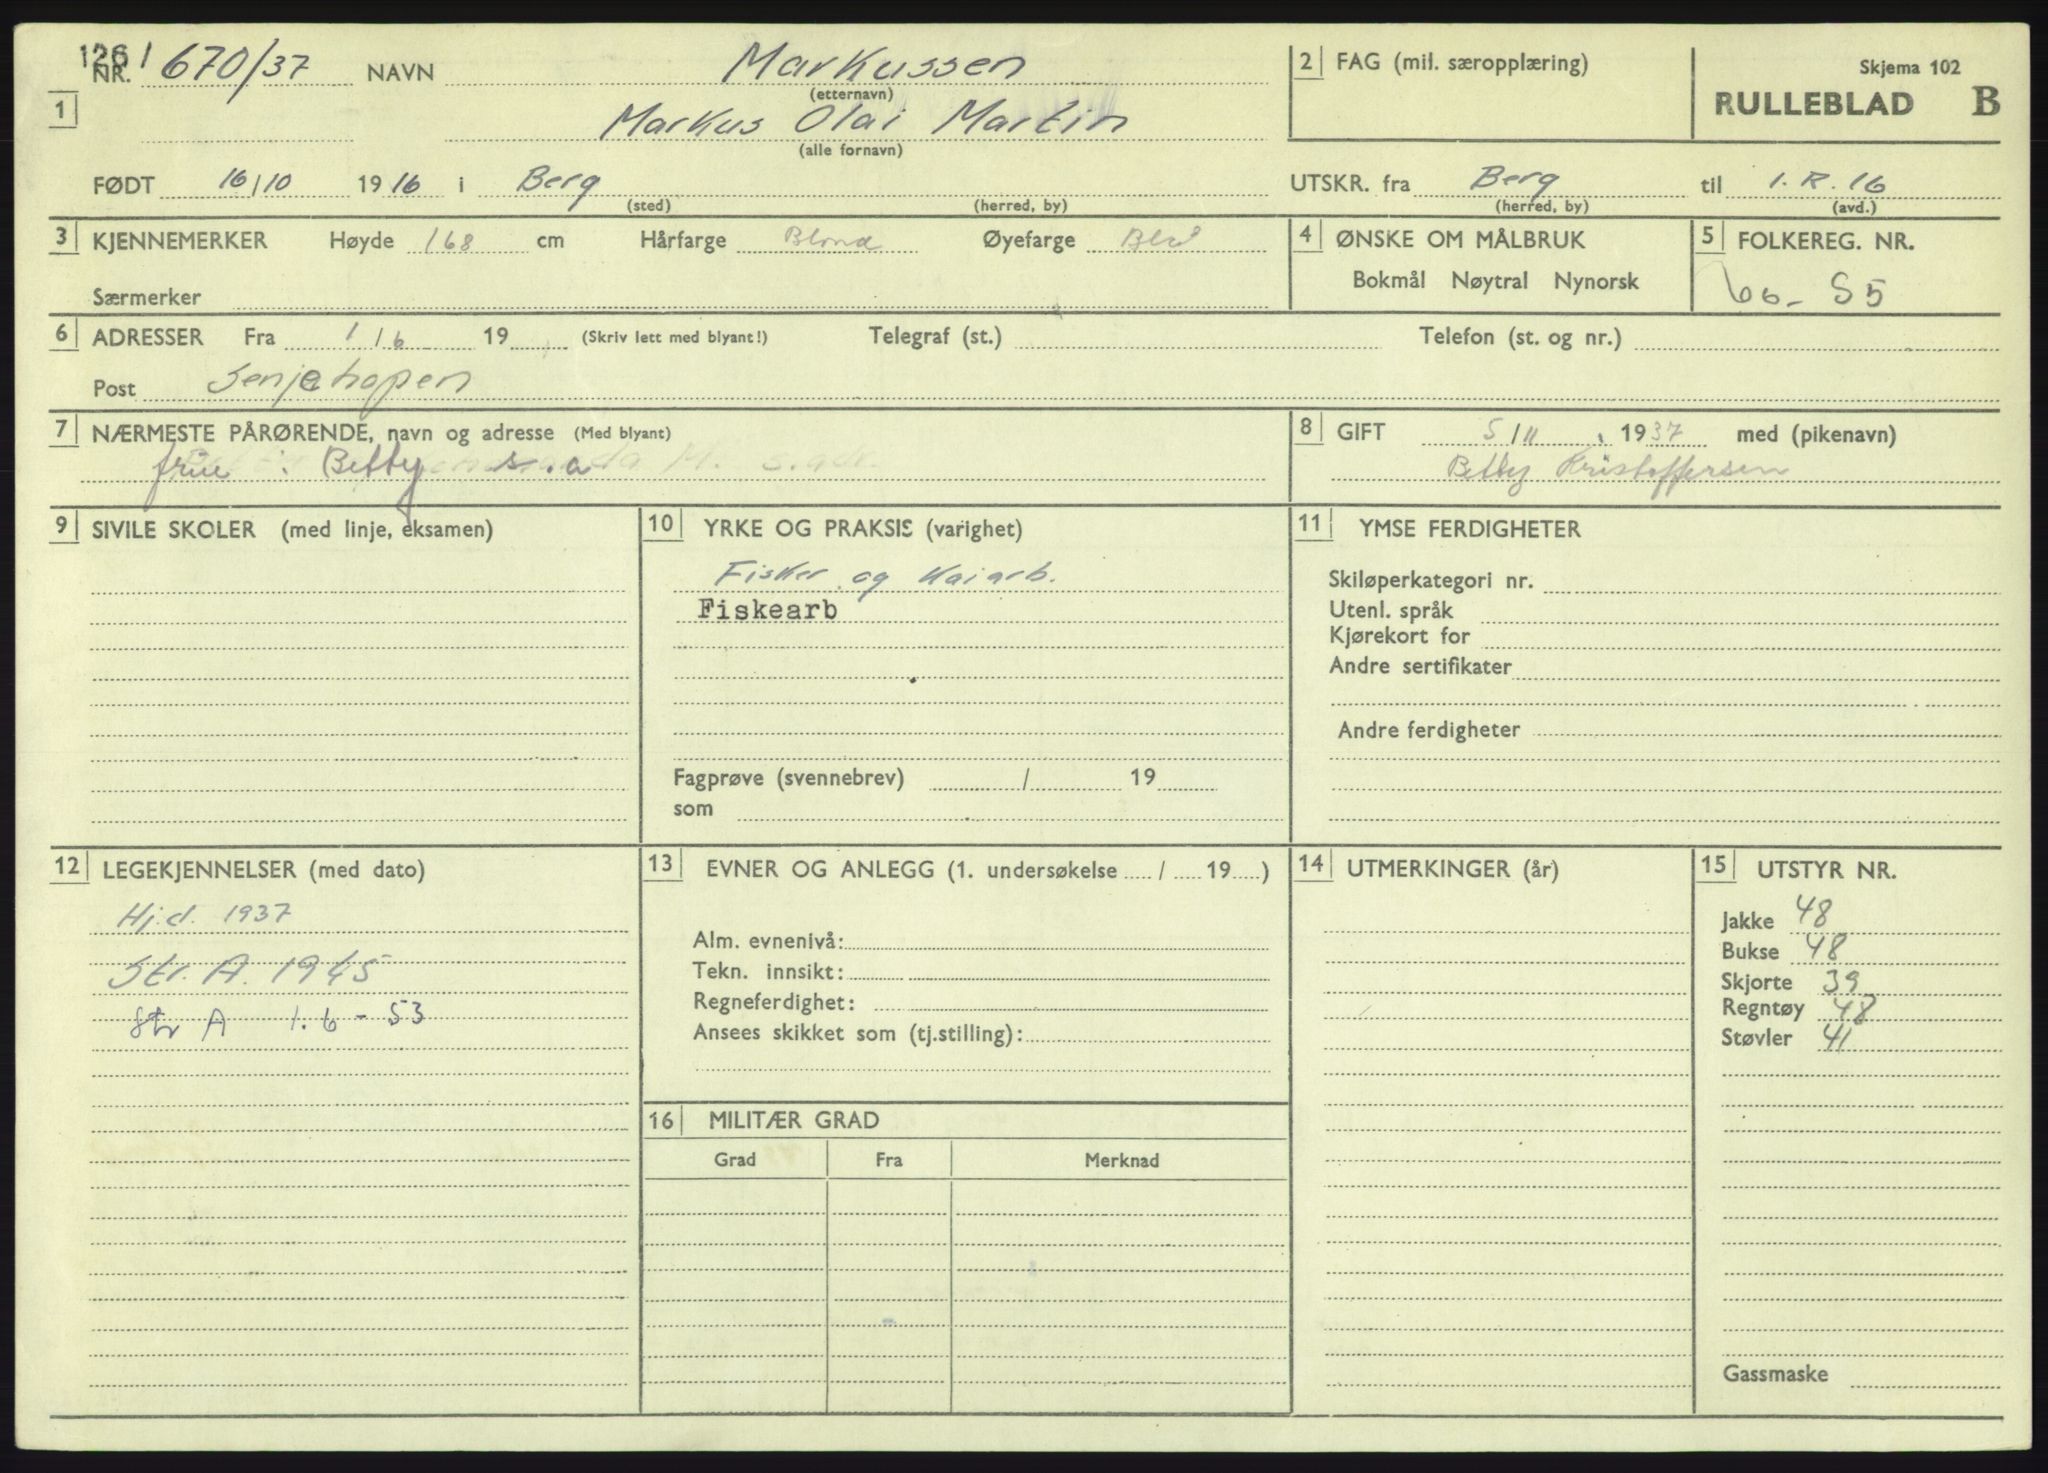 1261
NR. 670/37 NAVN Markussen
(etternavn)
2 FAG (mil. særopplæring)
Skjema 102
RULLEBLAD B
1
Markus Olai Martin
(alle fornavn)
FØDT 16/10 1916 i Berg
(sted) (herred, by)
UTSKR. fra Berg til I.R.16
(herred, by) (avd.)
3 KJENNEMERKER Høyde 168 cm Hårfarge Blond Øyefarge Blå
Særmerker
4 ØNSKE OM MÅLBRUK
Bokmål Nøytral Nynorsk
5 FOLKEREG. NR.
60- S5
6 ADRESSER Fra 1/6 19 (Skriv lett med blyant!) Telegraf (st.) Telefon (st. og nr.)
Post Senjehopen
7 NÆRMESTE PÅRØRENDE, navn og adresse (Med blyant)
frue : Betty s.a
8 GIFT 5/11 1937 med (pikenavn)
Betty Kristoffersen
9 SIVILE SKOLER (med linje, eksamen)
10 YRKE OG PRAKSIS (varighet)
Fisker og Kaiarb.
Fiskearb
Fagprøve (svennebrev) / 19
som
11 YMSE FERDIGHETER
Skiløperkategori nr.
Utenl. språk
Kjørekort for
Andre sertifikater
Andre ferdigheter
12 LEGEKJENNELSER (med dato)
Hj.d. 1937
Str. A. 1945
Str A 1.6-53
13 EVNER OG ANLEGG (1. undersøkelse / 19 )
Alm. evnenivå:
Tekn. innsikt:
Regneferdighet:
Ansees skikket som (tj.stilling):
16 MILITÆR GRAD
Grad Fra Merknad
14 UTMERKINGER (år)
15 UTSTYR NR.
Jakke 48
Bukse 48
Skjorte 39
Regntøy 48
Støvler 41
Gassmaske